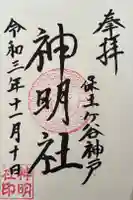 奉拝
保土ヶ谷神戸
神明社
令和三年十一月十日
神明社印